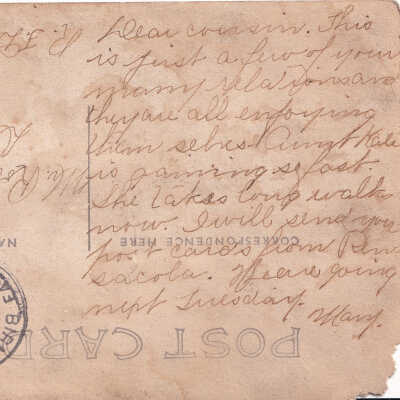 Dear coussin. This
is just a few of your
many relations and
they are all enjoying
them selves Aunt Kate
is gaining so fast
She takes long walk
now. I will send you
post cards from Pen
sacola. We are going
next Tuesday.
Mary.
CORRESPONDENCE HERE
POST CARD